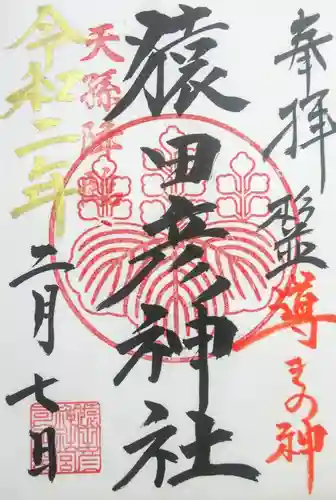 奉拝
導きの神
猿田彦神社
天孫降臨
令和二年
二月七日